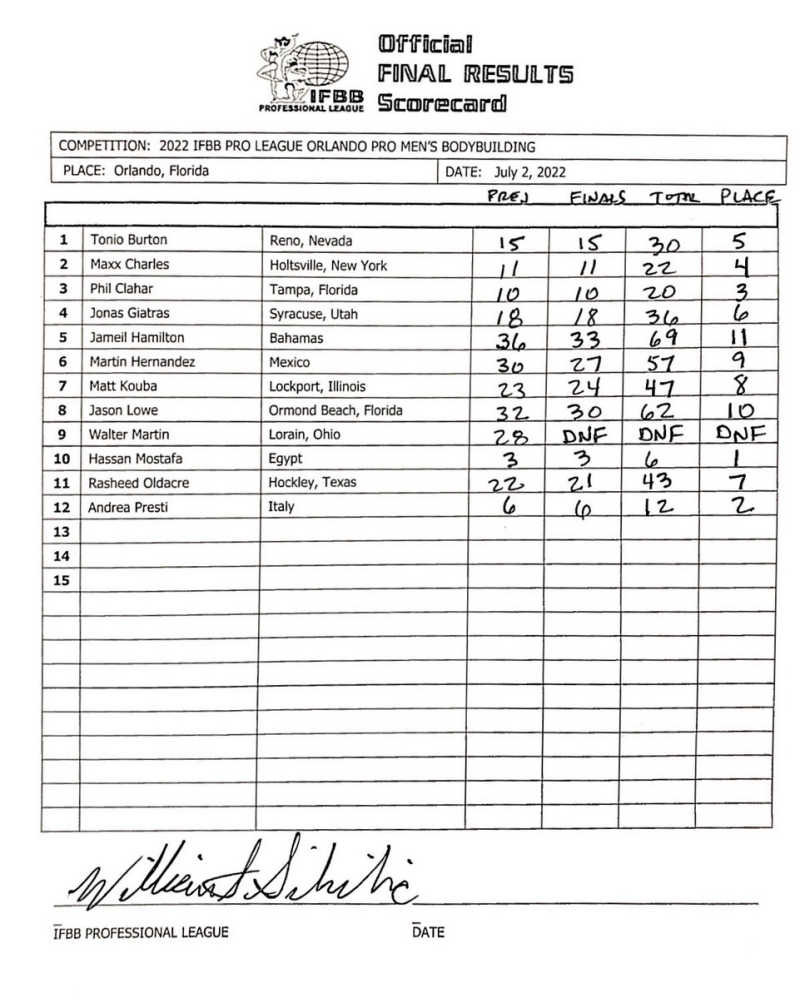 Official
FINAL RESULTS
IFBB
PROFESSIONAL LEAGUE
Scorecard
COMPETITION: 2022 IFBB PRO LEAGUE ORLANDO PRO MEN'S BODYBUILDING
PLACE: Orlando, Florida DATE: July 2, 2022
PREJ FINALS TOTAL PLACE
1 Tonio Burton Reno, Nevada 15 15 30 5
2 Maxx Charles Holtsville, New York 11 11 22 4
3 Phil Clahar Tampa, Florida 10 10 20 3
4 Jonas Giatras Syracuse, Utah 18 18 36 6
5 Jameil Hamilton Bahamas 36 33 69 11
6 Martin Hernandez Mexico 30 27 57 9
7 Matt Kouba Lockport, Illinois 23 24 47 8
8 Jason Lowe Ormond Beach, Florida 32 30 62 10
9 Walter Martin Lorain, Ohio 28 DNF DNF DNF
10 Hassan Mostafa Egypt 3 3 6 1
11 Rasheed Oldacre Hockley, Texas 22 21 43 7
12 Andrea Presti Italy 6 6 12 2
13
14
15
IFBB PROFESSIONAL LEAGUE DATE